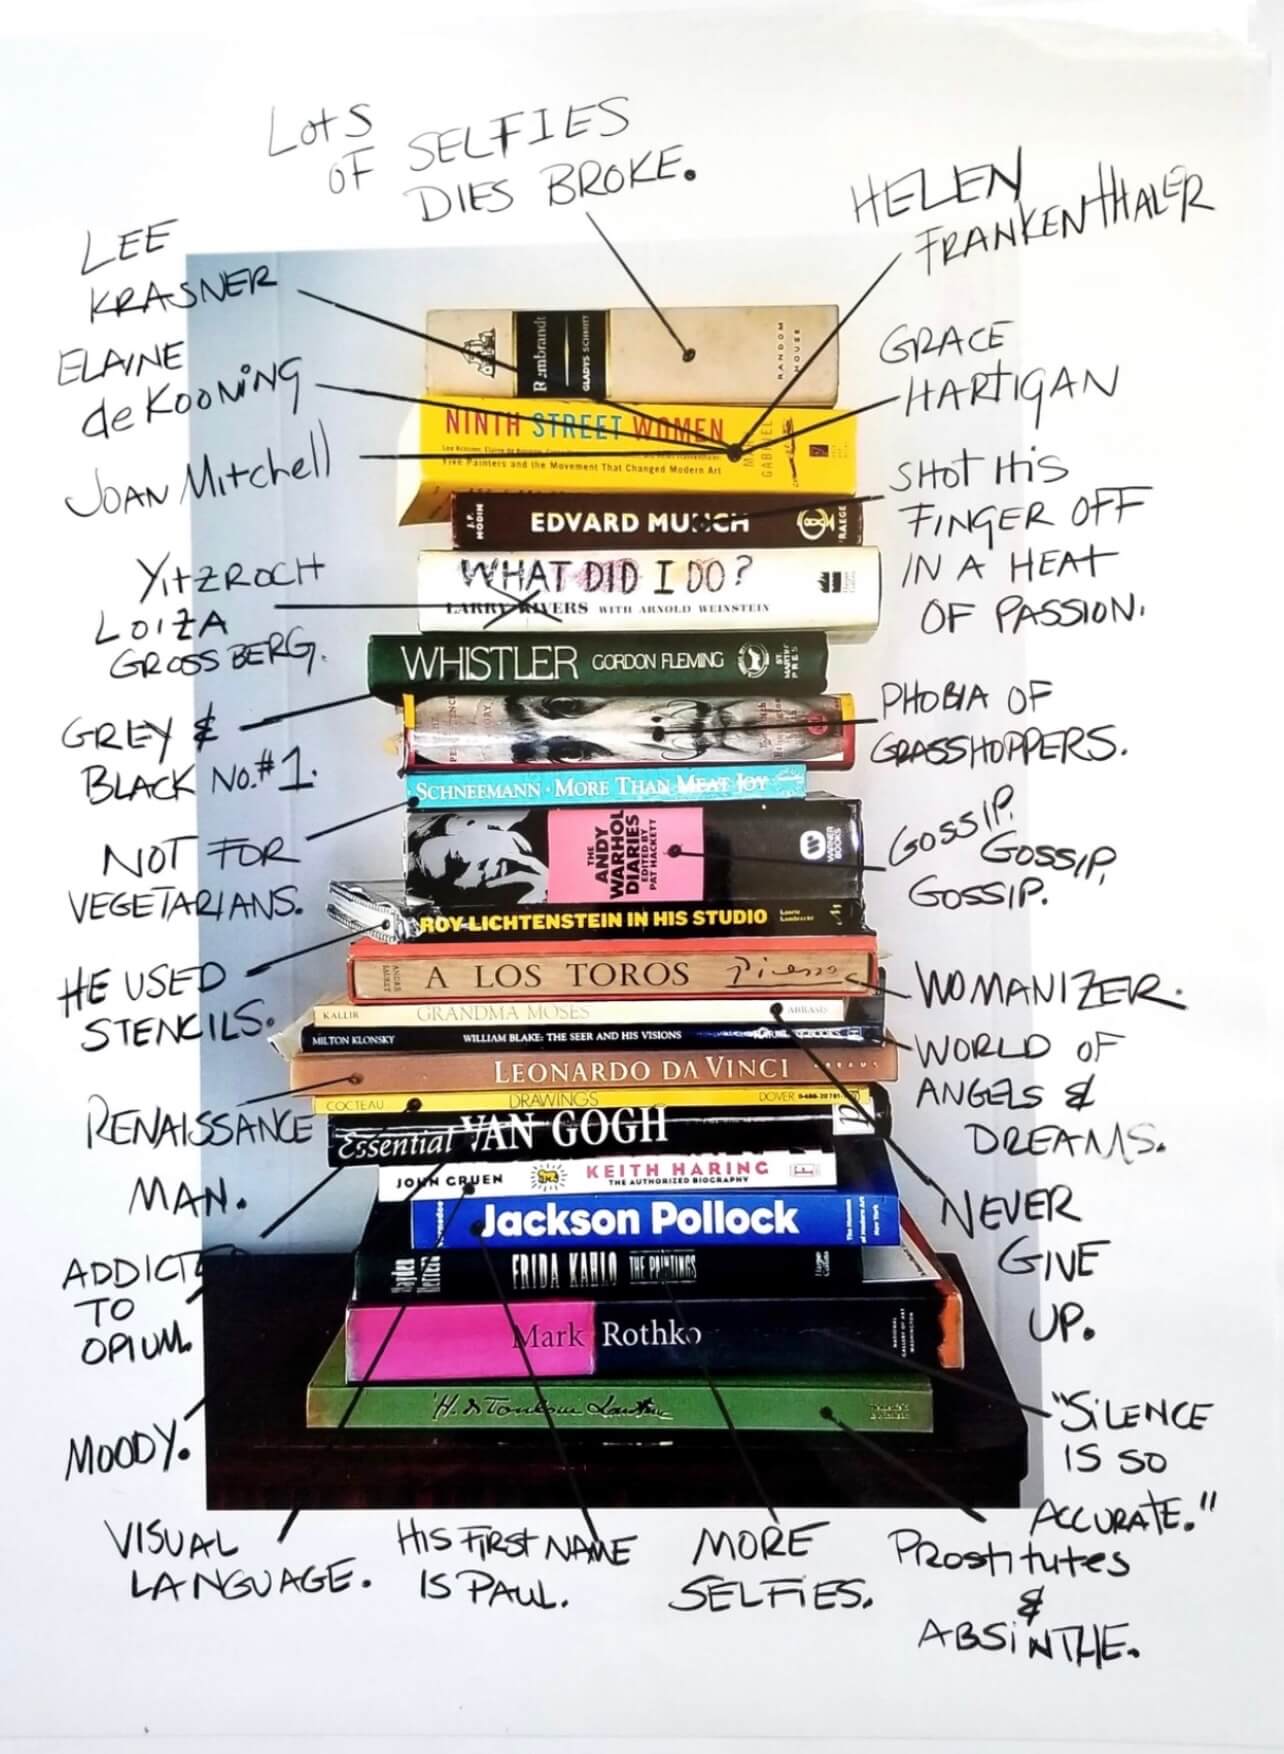 LOTS
OF SELFIES
DIES BROKE.
HELEN
FRANKENTHALER
LEE
KRASNER
ELAINE
de KOONING
JOAN MITCHELL
GRACE
HARTIGAN
Rembrandt
GLADYS SCHMITT
RANDOM
HOUSE
NINTH STREET WOMEN
Five Painters and the Movement That Changed Modern Art
GABRIEL
SHOT HIS
FINGER OFF
IN A HEAT
OF PASSION.
J.P.
HODIN
EDVARD MUNCH
YITZROCH
LOIZA
GROSSBERG.
WHAT DID I DO?
LARRY RIVERS WITH ARNOLD WEINSTEIN
WHISTLER GORDON FLEMING
GREY &
BLACK No.#1.
PHOBIA OF
GRASSHOPPERS.
SCHNEEMANN · MORE THAN MEAT JOY
NOT FOR
VEGETARIANS.
THE
ANDY
WARHOL
DIARIES
EDITED BY
PAT HACKETT
WARNER
BOOKS
GOSSIP.
GOSSIP,
GOSSIP.
ROY LICHTENSTEIN IN HIS STUDIO
HE USED
STENCILS.
A LOS TOROS Picasso
WOMANIZER.
KALLIR GRANDMA MOSES ABRAMS
MILTON KLONSKY WILLIAM BLAKE: THE SEER AND HIS VISIONS
WORLD OF
ANGELS &
DREAMS.
LEONARDO DA VINCI ABRAMS
RENAISSANCE
MAN.
COCTEAU DRAWINGS DOVER
Essential VAN GOGH
NEVER
GIVE
UP.
JOHN GRUEN KEITH HARING
THE AUTHORIZED BIOGRAPHY
Jackson Pollock
The Museum
of Modern Art
New York
ADDICTED
TO
OPIUM.
Hayden
Herrera
FRIDA KAHLO THE PAINTINGS
Mark Rothko
NATIONAL
GALLERY OF ART
WASHINGTON
MOODY.
"SILENCE
IS SO
ACCURATE."
H. de Toulouse Lautrec
VISUAL
LANGUAGE.
HIS FIRST NAME
IS PAUL.
MORE
SELFIES.
Prostitutes
&
ABSINTHE.